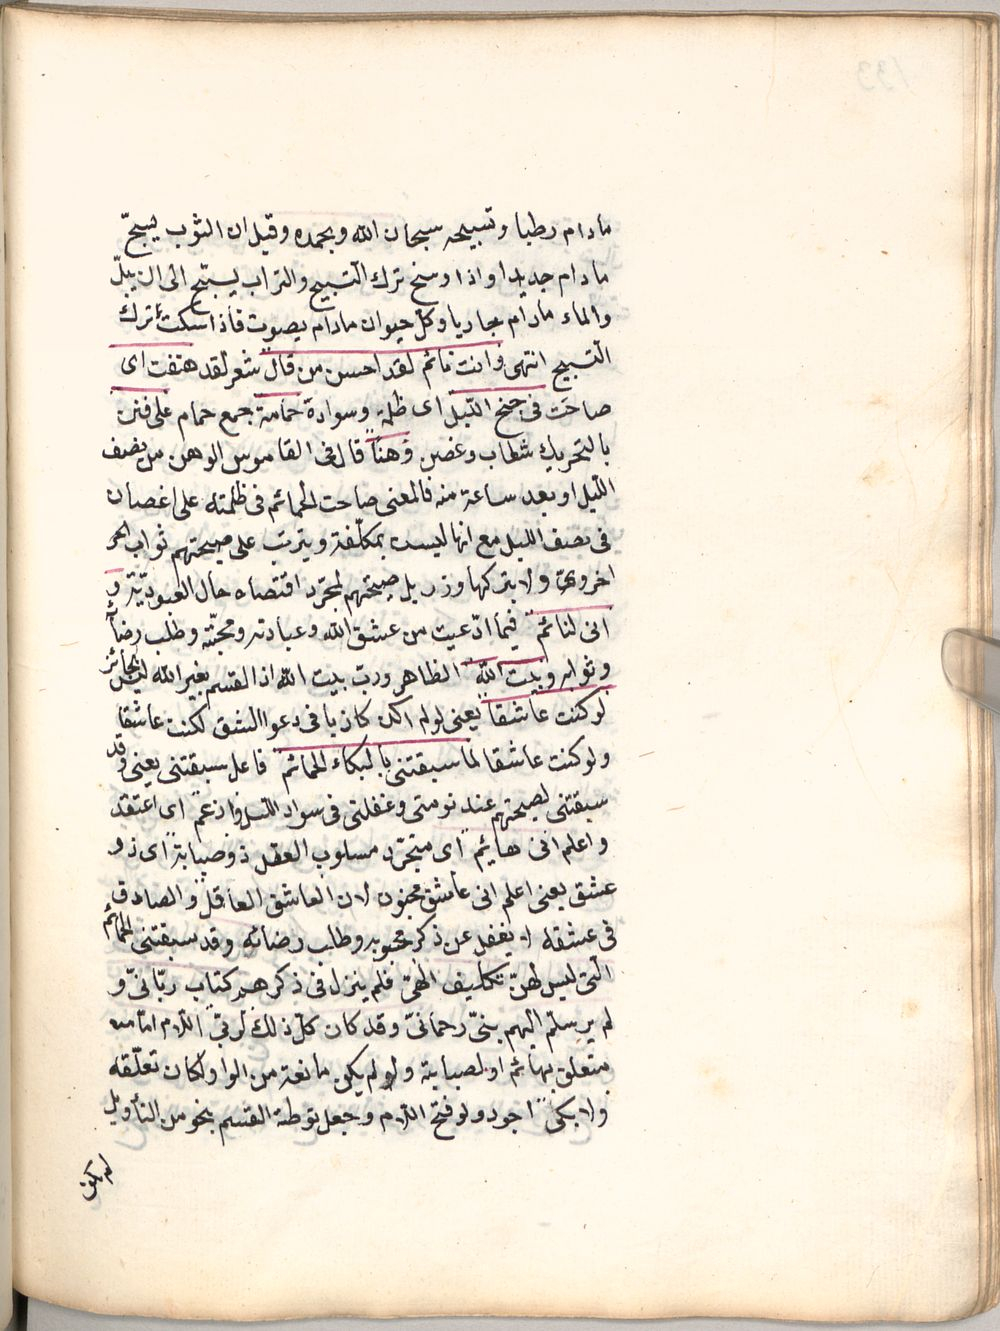 مادام رطبا وتسبيحه سبحان الله وبحمده وقيل ان الثوب يسبّح
مادام جديدا واذا وسخ ترك التسبيح والتراب يسبّح الى ان يبلّ
والماء مادام جاريا وكل حيوان مادام يصوت فاذا سكت ترك
التسبيح انتهى وانت نائم لقد احسن من قال شعر لقد هتفت اى
صاحت فى جنح الليل اى ظلمة وسواده حمامة جمع حمام على فنن
بالتحريك وغصن وهنا قال فى القاموس الوهن من نصف
الليل او بعد ساعة منه فالمعنى صاحت الحمائم فى ظلمته على اغصان
فى نصف الليل مع انها ليست بمكلّفة ويترتب على صيحتهم ثواب
اخروىّ ولا بتركها وزر بل صيحتهم لمجرّد اقتضاء حال العبوديّة و
انى لنائم فيما ادّعيت من عشق الله وعبادته ومحبّته وطلب رضائه
وثوابه وبيت الله الظاهر وربّ بيت الله اذ القسم بغير الله ليس بجائز
لو كنت عاشقا يعنى لو لم اكن كاذبا فى دعوا العشق لكنت عاشقا
ولو كنت عاشقا لما سبقتنى بالبكاء الحمائم فاعل سبقتنى يعنى وقد
سبقتنى لصيحتهم عند نومتى وغفلتى فى سواد الليل وازعم اى اعتقد
واعلم انى هائم اى متحيّر مسلوب العقل ذو صبابة اى ذو
عشق يعنى اعلم انى عاشق مجنون لان العاشق العاقل والصادق
فى عشقه لا يغفل عن ذكر محبوبه وطلب رضائه وقد سبقتنى الحمائم
الّتى ليس لهنّ تكليف الهىّ فلم ينزل فى ذكرهم كتاب ربّانىّ و
لم يرسل اليهم نبىّ رحمانىّ وقد كان كلّ ذلك لربّى اللام امّا
متعلق بهائم او لصبابة ولو لم يكن مانعة من الواو لكان تعلّقه
ولا بكى اجود ولو فتح اللام وجعل توطئة القسم بنحو من التأويل
لم يكن